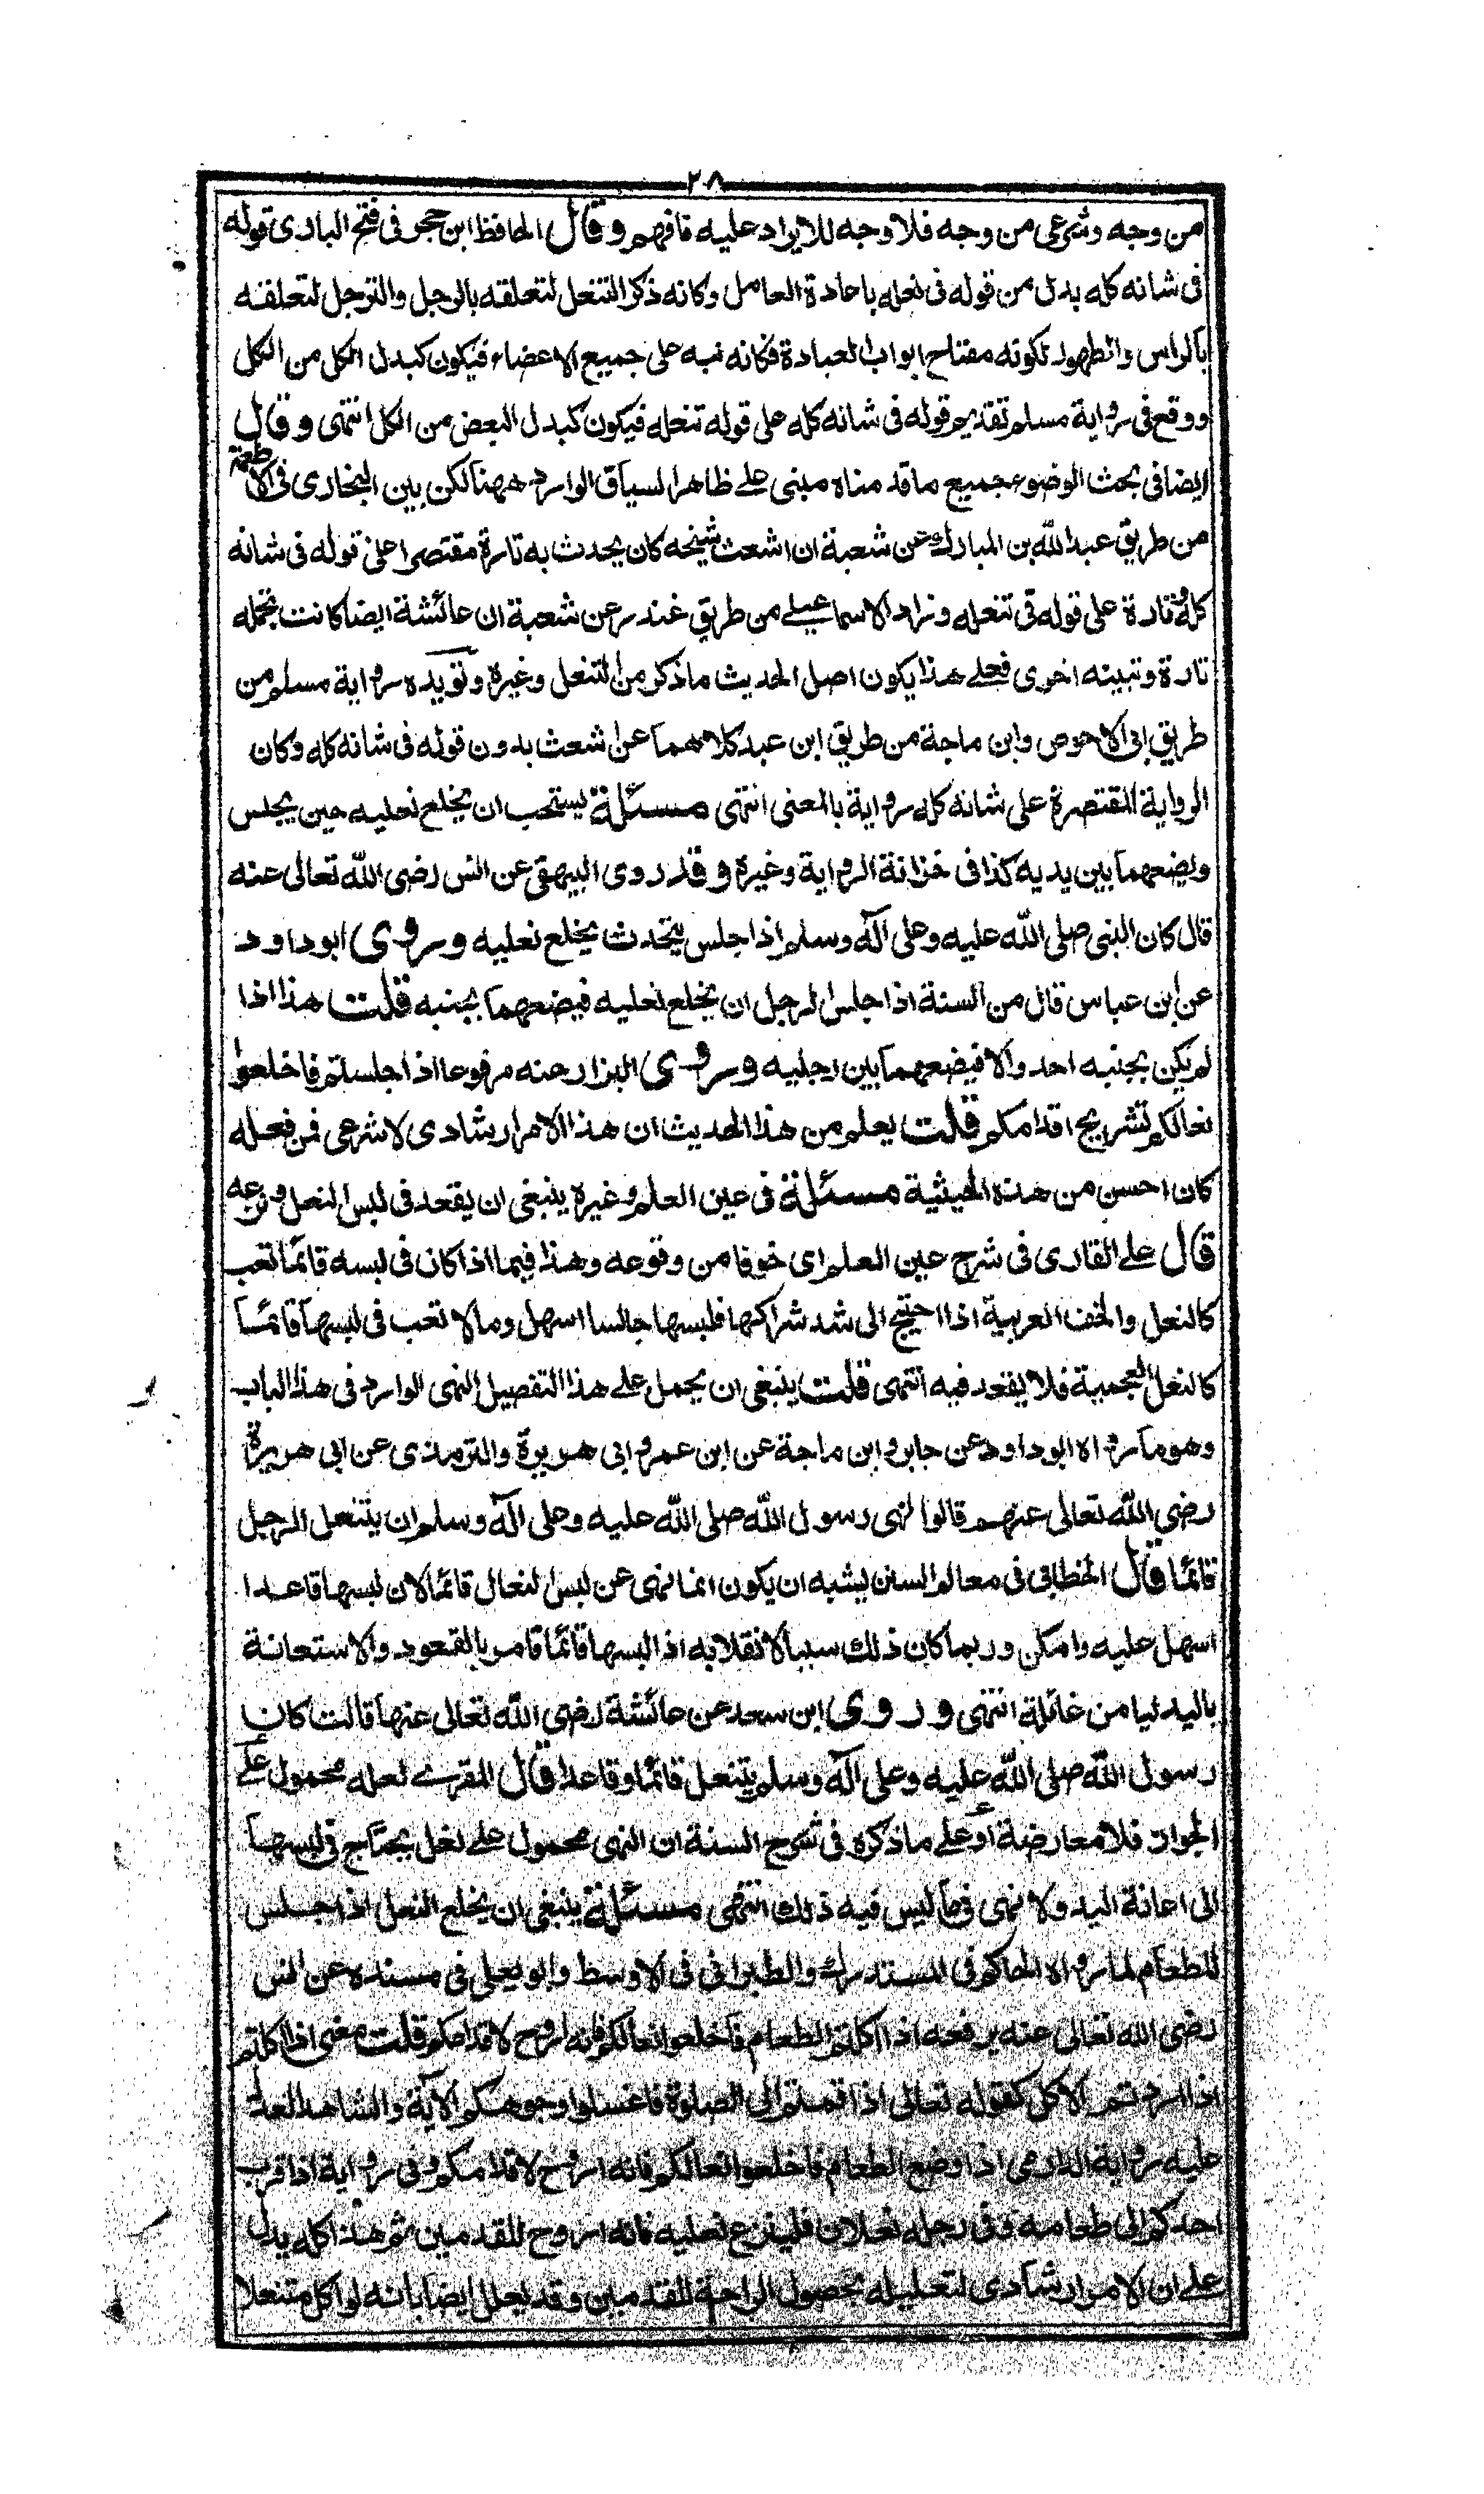 ٢٨
من وجه وشرعي من وجه فلا وجه للايراد عليه فافهم وقال الحافظ ابن حجر في فتح الباري قوله
في شانه كله بدل من قوله في نعله باعادة العامل وكانه ذكر التنعل لتعلقه بالرجل والترجل لتعلقه
بالراس والطهور لكونه مفتاح ابواب العبادة فكانه نبه على جميع الاعضاء فيكون كبدل الكل من الكل
ووقع في رواية مسلم تقديم قوله في شانه كله على قوله تنعله فيكون كبدل البعض من الكل انتهى وقال
ايضا في بحث الوضوء جميع ما قدمناه مبني على ظاهر السياق الوارد ههنا لكن بين البخاري في الاطعمة
من طريق عبد الله بن المبارك عن شعبة ان اشعث شيخه كان يحدث به تارة مقتصرا على قوله في شانه
كله وتارة على قوله في تنعله وزاد الاسماعيلي من طريق غندر عن شعبة ان عائشة ايضا كانت تجمله
تارة وتبينه اخرى فعلى هذا يكون اصل الحديث ما ذكر من التنعل وغيره وتؤيده رواية مسلم من
طريق ابي الاحوص وابن ماجة من طريق ابن عبد كلاهما عن اشعث بدون قوله في شانه كله وكان
الرواية المقتصرة على شانه كله رواية بالمعنى انتهى مسئلة يستحب ان يخلع نعليه حين يجلس
ويضعهما بين يديه كذا في خزانة الرواية وغيره وقد روى البيهقي عن انس رضي الله تعالى عنه
قال كان النبي صلى الله عليه وعلى آله وسلم اذا جلس يتحدث يخلع نعليه وروى ابو داود
عن ابن عباس قال من السنة اذا جلس الرجل ان يخلع نعليه فيضعهما بجنبه قلت هذا اذا
لم يكن بجنبه احد والا فيضعهما بين رجليه وروى البزار عنه مرفوعا اذا جلستم فاخلعوا
نعالكم تستريح اقدامكم قلت يعلم من هذا الحديث ان هذا الامر ارشادي لا شرعي فمن فعله
كان احسن من هذه الحيثية مسئلة في عين العلم وغيره ينبغي ان يقعد في لبس النعل ونزعه
قال على القاري في شرح عين العلم اى خوفا من وقوعه وهذا فيما اذا كان في لبسه قائما تعب
كالنعل والخف العربية اذا احتيج الى شد شراكها فلبسها جالسا اسهل وما لا تعب في لبسها قائما
كالنعل العجمية فلا يقعد فيه انتهى قلت ينبغي ان يحمل على هذا التفصيل النهي الوارد في هذا الباب
وهو ما رواه ابو داود عن جابر وابن ماجة عن ابن عمر وابي هريرة والترمذي عن ابي هريرة
رضي الله تعالى عنهم قالوا نهى رسول الله صلى الله عليه وعلى آله وسلم ان يتنعل الرجل
قائما قال الخطابي في معالم السنن يشبه ان يكون انما نهى عن لبس النعال قائما لان لبسها قاعدا
اسهل عليه وامكن وربما كان ذلك سببا لانقلابه اذا لبسها قائما فامر بالقعود والاستعانة
باليد ليامن غائلة انتهى وروى ابن سعد عن عائشة رضي الله تعالى عنها قالت كان
رسول الله صلى الله عليه وعلى آله وسلم يتنعل قائما وقاعدا قال المقري لعله محمول على
الجواز فلا معارضة او على ما ذكره في شرح السنة ان النهي محمول على نعل يحتاج في لبسها
الى اعانة اليد ولا نهي فيما ليس فيه ذلك انتهى مسئلة ينبغي ان يخلع النعل اذا جلس
للطعام لما رواه الحاكم في المستدرك والطبراني في الاوسط وابو يعلى في مسنده عن انس
رضي الله تعالى عنه يرفعه اذا اكلتم الطعام فاخلعوا نعالكم فانه اروح لاقدامكم قلت معنى اذا اكلتم
اذا اردتم الاكل كقوله تعالى اذا قمتم الى الصلوة فاغسلوا وجوهكم الآية والشاهد العدل
عليه رواية الدارمي اذا وضع الطعام فاخلعوا نعالكم فانه اروح لاقدامكم وفي رواية اذا قرب
احدكم الى طعامه وفي رجله نعلان فلينزع نعليه فانه اروح للقدمين ثم هذا كله يدل
على ان الامر ارشادي لتعليله بحصول الراحة للقدمين وقد يعلل ايضا بانه لو اكل متنعلا